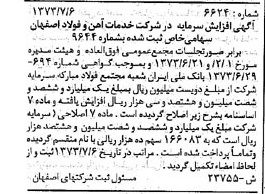 شماره: ۶۶۲۴ ۱۳۷۳/۷/۶
آگهی افزایش سرمایه در شرکت خدمات آهن و فولاد اصفهان
سهامی خاص ثبت شده بشماره ۹۶۴۴
برابر صورتجلسات مجمع عمومی فوق‌العاده و هیئت مدیره
مورخ ۱۳۷۳/۶/۲۱ و ۲/۱ و بموجب گواهی شماره ۶۹۴-
۱۳۷۳/۶/۲۹ بانک ملی ایران شعبه مجتمع فولاد مبارکه سرمایه
شرکت از مبلغ دویست میلیون ریال بمبلغ یک میلیارد و ششصد و
شصت میلیون و هشتصد و سی هزار ریال افزایش یافته و ماده ۷
اساسنامه بشرح زیر اصلاح گردیده است. ماده ۷ اصلاحی (سرمایه
شرکت مبلغ یک میلیارد و ششصد و شصت میلیون و هشتصد هزار
ریال است که به ۱۶۶۰۸۳ سهم ده هزار ریالی با نام منقسم گردیده
وتماماً پرداخت شده است. مراتب در تاریخ ۱۳۷۳/۷/۶ ثبت و از
لحاظ امضاء تکمیل گردید.
ش-۲۳۷۵۵ مسئول ثبت شرکتهای اصفهان